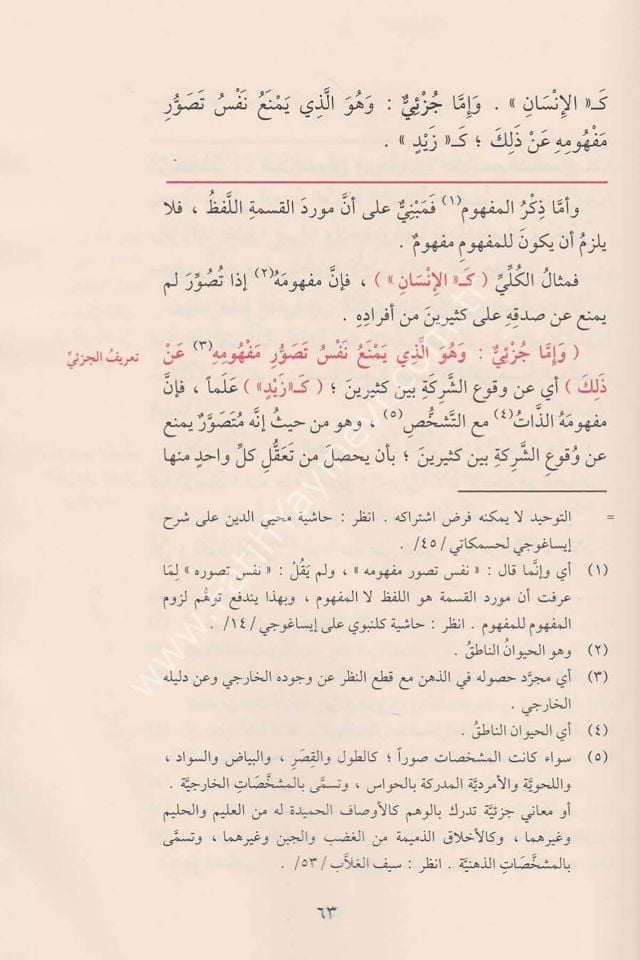 كَـ« الإِنْسَانِ » . وَإِمَّا جُزْئِيٌّ : وَهُوَ الَّذِي يَمْنَعُ نَفْسُ تَصَوُّرِ
مَفْهُومِهِ عَنْ ذَلِكَ ؛ كَـ« زَيْدٍ » .
وأمَّا ذِكْرُ المفهومِ(١) فَمَبْنِيٌّ على أنَّ موردَ القسمةِ اللَّفظُ ، فلا
يلزمُ أن يكونَ للمفهومِ مفهومٌ .
فمثالُ الكُلِّيِّ ( كَـ« الإِنْسَانِ » ) ، فإنَّ مفهومَهُ(٢) إذا تُصُوِّرَ لم
يمنع عن صدقِهِ على كثيرينَ من أفرادِهِ .
( وَإِمَّا جُزْئِيٌّ : وَهُوَ الَّذِي يَمْنَعُ نَفْسُ تَصَوُّرِ مَفْهُومِهِ(٣) عَنْ
تعريفُ الجزئيِّ
ذَلِكَ ) أي عن وقوع الشَّرِكَةِ بين كثيرينَ ؛ ( كَـ«زَيْدٍ» ) عَلَماً ، فإنَّ
مفهومَهُ الذَّاتُ(٤) مع التَّشخُّصِ(٥) ، وهو من حيثُ إنَّه مُتَصَوَّرٌ يمنع
عن وُقوعِ الشَّرِكةِ بين كثيرينَ ؛ بأن يحصلَ من تَعَقُّلِ كلِّ واحدٍ منها
= التوحيد لا يمكنه فرض اشتراكه . انظر : حاشية محيي الدين على شرح
إيساغوجي لحسمكاتي /٤٥/ .
(١) أي وإنَّما قال : « نفس تصور مفهومه » ، ولم يَقُلْ : « نفس تصوره » لِمَا
عرفت أن مورد القسمة هو اللفظ لا المفهوم ، وبهذا يندفع توهُّم لزوم
المفهوم للمفهوم . انظر : حاشية كلنبوي على إيساغوجي /١٤/ .
(٢) وهو الحيوانُ الناطقُ .
(٣) أي مجرَّد حصوله في الذهن مع قطع النظر عن وجوده الخارجي وعن دليله
الخارجي .
(٤) أي الحيوان الناطقُ .
(٥) سواء كانت المشخصات صوراً ؛ كالطول والقِصَرِ ، والبياض والسواد ،
واللحويَّة والأمرديَّة المدركة بالحواس ، وتسمَّى بالمشخَّصَاتِ الخارجيَّة .
أو معاني جزئيَّة تدرك بالوهم كالأوصاف الحميدة له من العليم والحليم
وغيرهما ، وكالأخلاق الذميمة من الغضب والجبن وغيرهما ، وتسمَّى
بالمشخَّصَاتِ الذهنيَّة . انظر : سيف الغلاَّب /٥٣/ .
٦٣